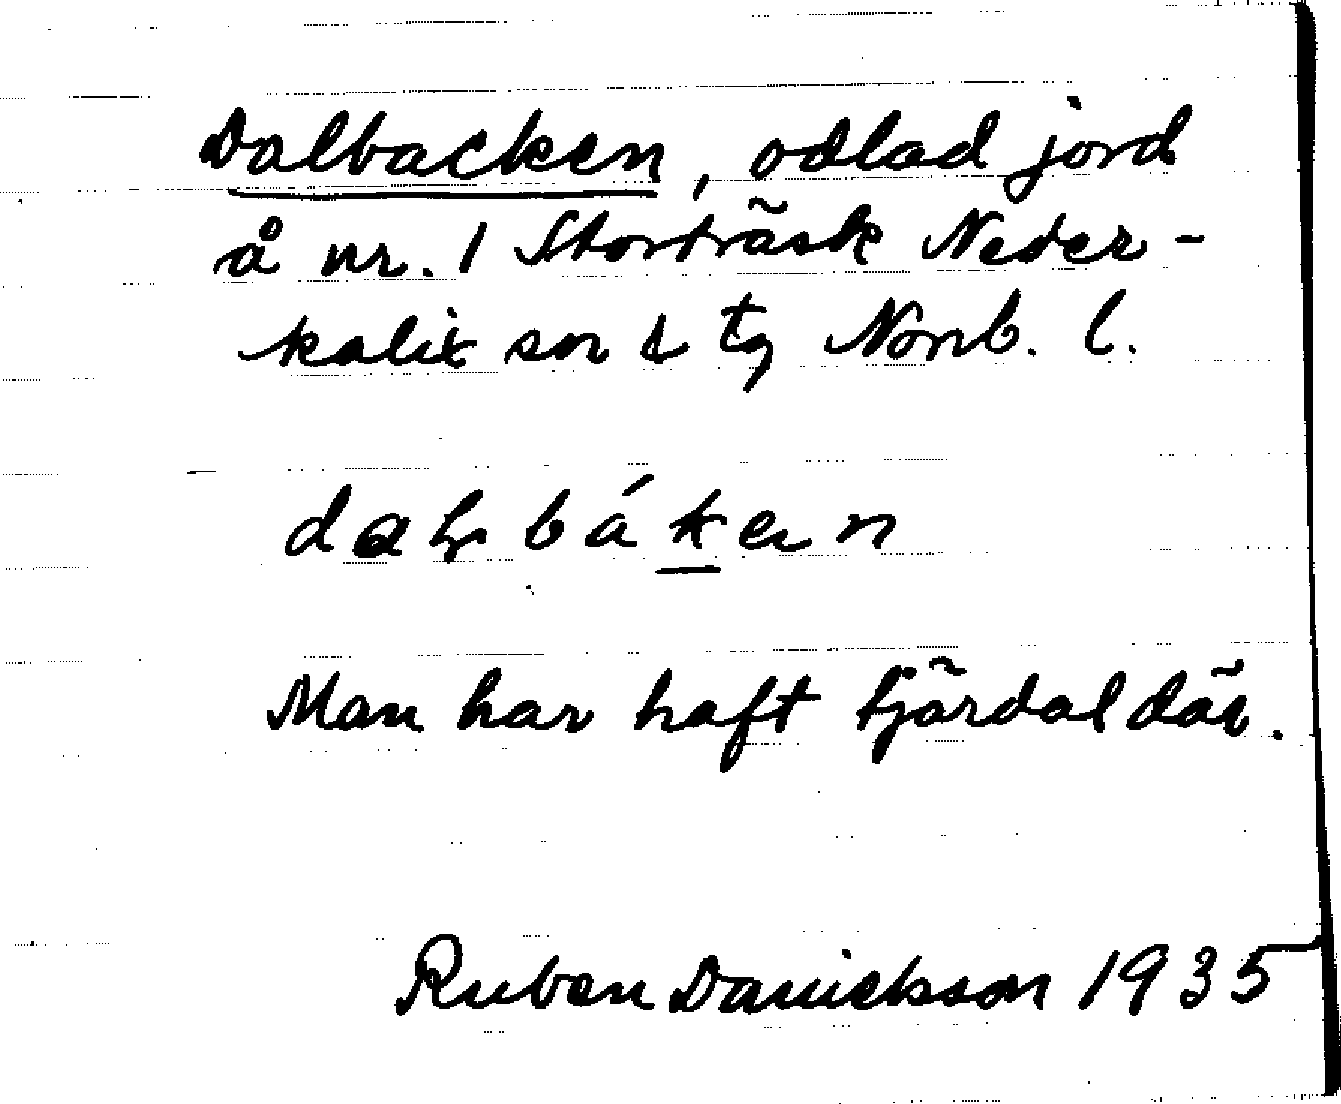 Dalbacken, odlad jord
å nr. 1 Storträsk Neder-
kalix sn o tg Norrb. l.
dalbáken
Man har haft tjärdal där.
Ruben Danielsson 1935